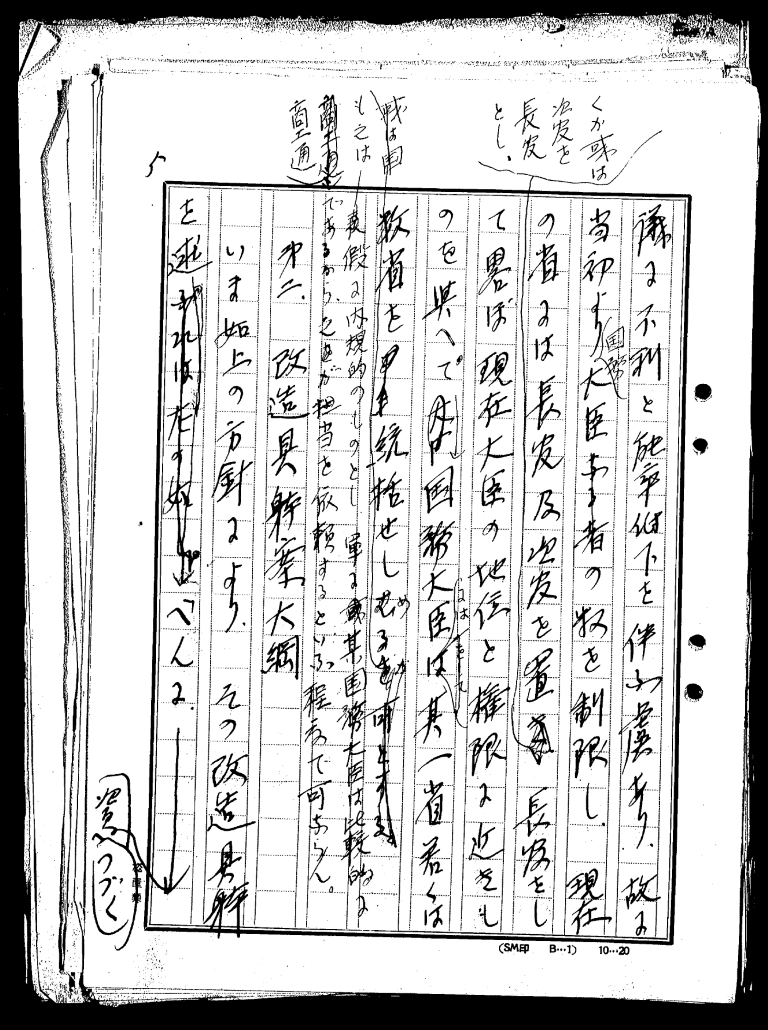 くか或は
次官を
長官
とし、
議に不利と能率低下を伴ふ虞あり、故に
当初より国務大臣なる者の数を制限し、現在
の省には長官及次官を置き長官をし
て略ぼ現在大臣の地位と権限に近きも
のを与へて、国務大臣は其一省若くは
数省を統括せしむるを可とする。
或は国
もそは
仮に内規的のものとし、単に或某国務大臣は比較的に
商工通
であるから、それが担当を依頼するといふ程度で可ならん。
商工通
第二、改造具体案大綱
いま如上の方針により、その改造具体
を述ぶれば左の如し
べんに、
次へつづく
5
(SM印 B…1) 10…20